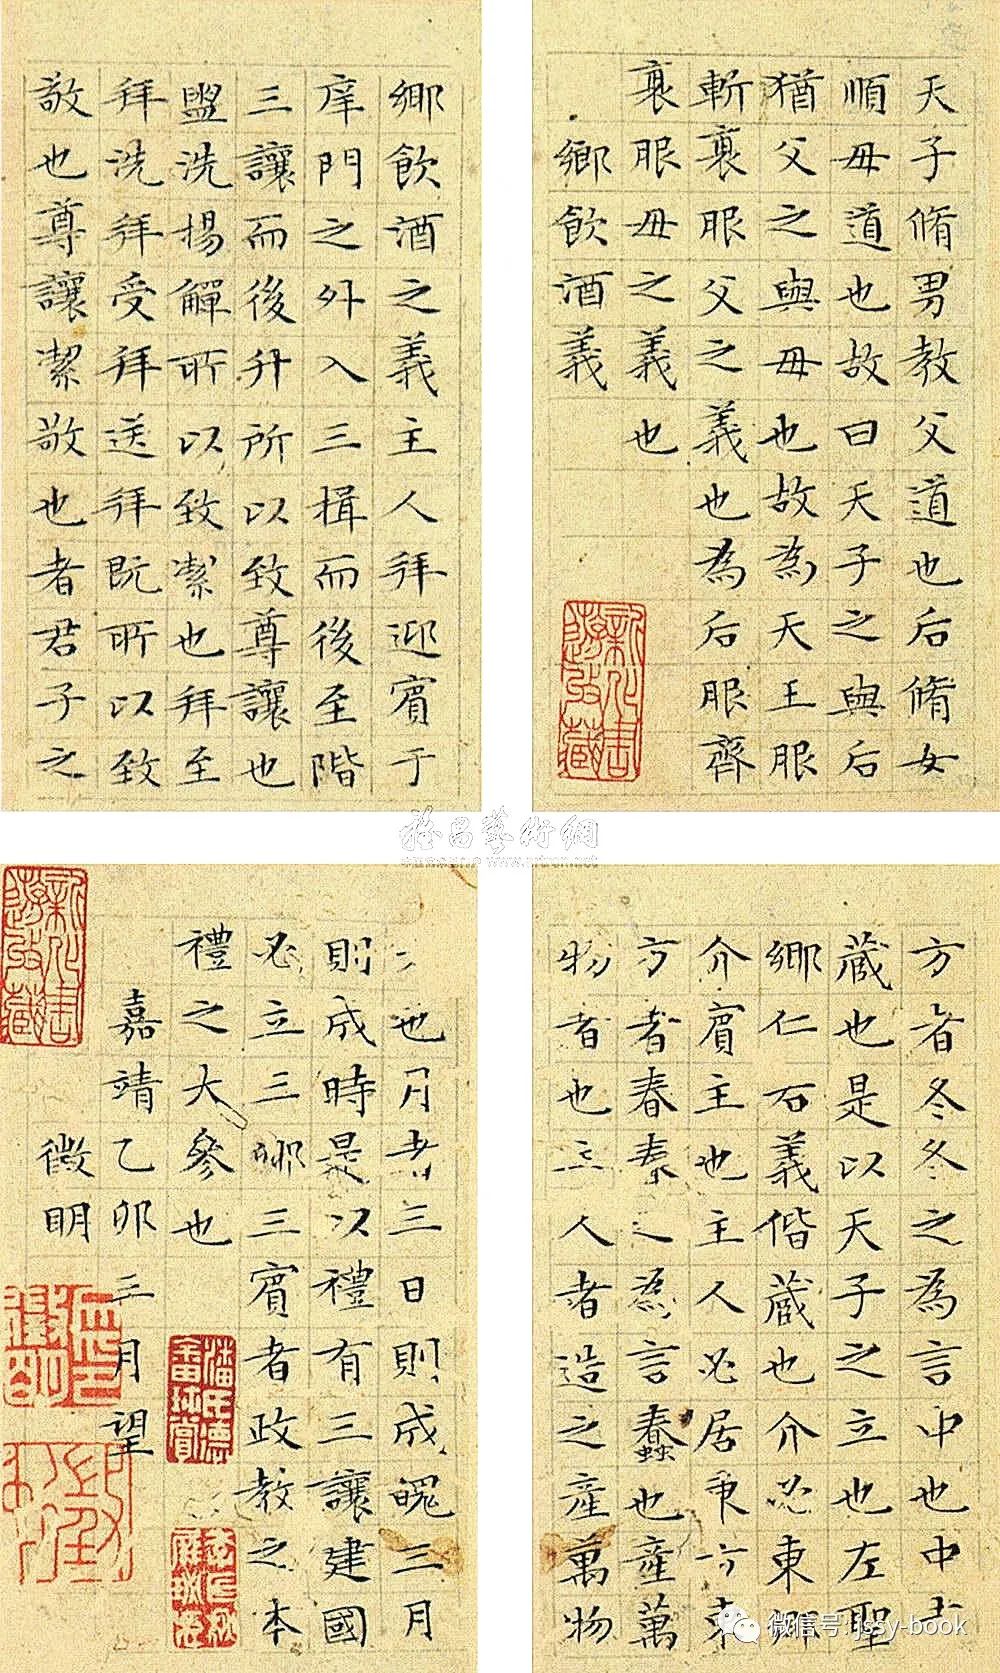 天子脩男教父道也后脩女
順母道也故曰天子之與后
猶父之與母也故為天王服
斬衰服父之義也為后服齊
衰服母之義也
鄉飲酒義
鄉飲酒之義主人拜迎賓于
庠門之外入三揖而後至階
三讓而後升所以致尊讓也
盥洗揚觶所以致潔也拜至
拜洗拜受拜送拜既所以致
敬也尊讓潔敬也者君子之
雅昌藝術網
www.artron.net
方者冬冬之為言中也中者
藏也是以天子之立也左聖
鄉仁右義偝藏也介必東鄉
介賓主也主人必居東方東
方者春春之為言蠢也產萬
物者也主人者造之產萬物
者也月者三日則成魄三月
則成時是以禮有三讓建國
必立三卿三賓者政教之本
禮之大參也
嘉靖乙卯三月望
徵明
微信号: jssy-book